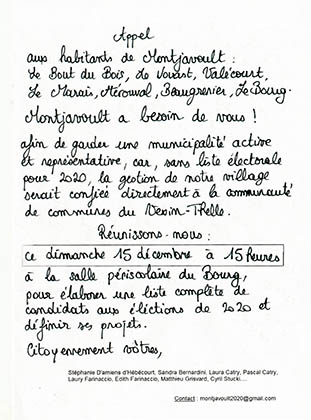 Appel
aux habitants de Montjavoult :
Le Bout du Bois, Le Vouast, Valécourt,
Le Marais, Mérouval, Beaugrenier, Le Bourg.
Montjavoult a besoin de vous !
afin de garder une municipalité active
et représentative, car, sans liste électorale
pour 2020, la gestion de notre village
serait confiée directement à la communauté
de communes du Vexin-Thelle.
Réunissons-nous :
ce dimanche 15 décembre à 15 heures
à la salle périscolaire du Bourg,
pour élaborer une liste complète de
candidats aux élections de 2020 et
définir ses projets.
Citoyennement vôtres,
Stéphanie D'amiens d'Hébécourt, Sandra Bernardini, Laura Catry, Pascal Catry,
Laury Farinaccio, Edith Farinaccio, Matthieu Grisvard, Cyril Stucki....
Contact : montjavoult2020@gmail.com